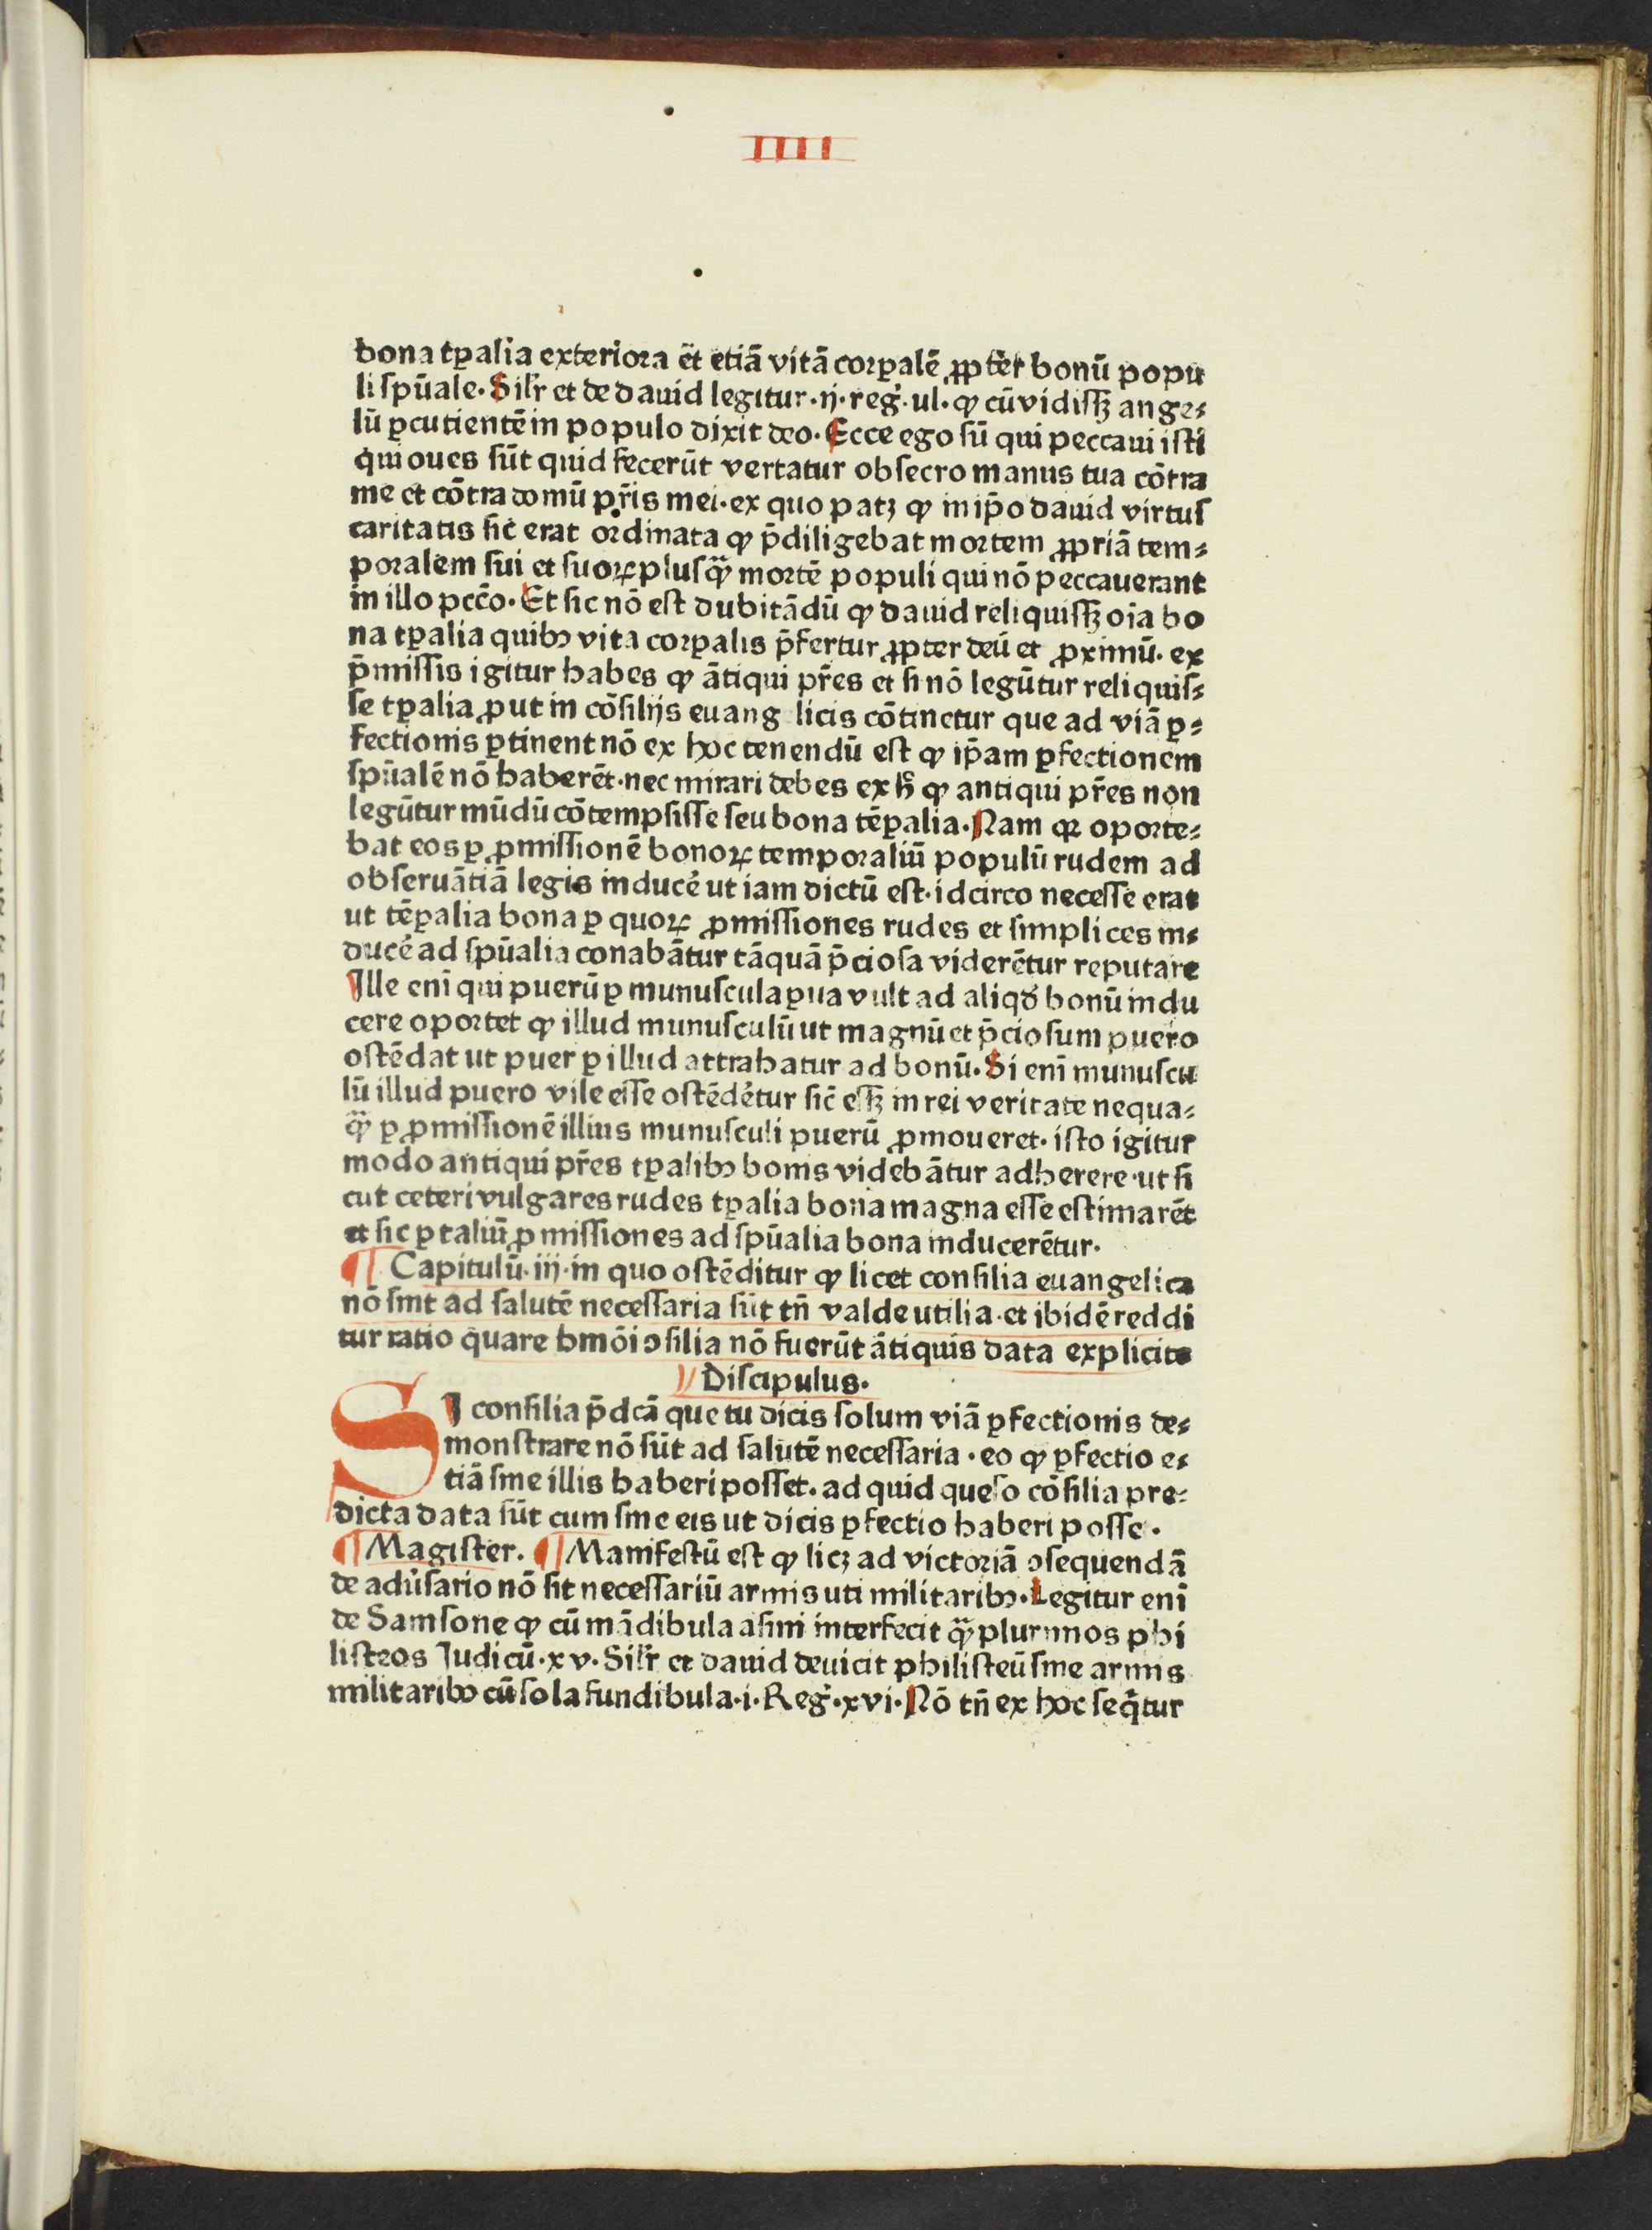 IIII
bona tꝑalia exteriora et̄ etiā vitā corꝑalē ꝓpter bonū popu
li spūale. Silr̄ et de dauid legitur .ij. reg̉. ul. ꝙ cū vidissꝫ ange⸗
lū ꝑcutientē in populo dixit deo. Ecce ego sū qui peccaui isti
qui oues sūt quid fecerūt vertatur obsecro manus tua cōtra
me et cōtra domū pr̄is mei. ex quo patꝫ ꝙ in ip̄o dauid virtus
caritatis sic̄ erat ordinata ꝙ p̄diligebat mortem ꝓpriā tem⸗
poralem sui et suoꝝ plusꝙ̄ mortē populi qui nō peccauerant
in illo pcc̄o. Et sic nō est dubitādū ꝙ dauid reliquissꝫ oīa bo
na tꝑalia quibꝰ vita corꝑalis p̄fertur ꝓpter deū et ꝓximū. ex
p̄missis igitur habes ꝙ ātiqui pr̄es et si nō legūtur reliquis⸗
se tꝑalia ꝓut in cōsilijs euang licis cōtinetur que ad viā ꝑ⸗
fectionis ꝑtinent nō ex hoc tenendū est ꝙ ip̄am ꝑfectionem
spūalē nō haberēt. nec mirari debes ex hͦ ꝙ antiqui pr̄es non
legūtur mūdū cōtempsisse seu bona tēꝑalia. Nam qꝛ oporte⸗
bat eos ꝑ ꝓmissionē bonoꝝ temporaliū populū rudem ad
obseruātiā legis inducē ut iam dictū est. idcirco necesse erat
ut tēꝑalia bona ꝑ quoꝝ ꝓmissiones rudes et simplices in⸗
ducē ad spūalia conabātur tāquā p̄ciosa viderētur reputare
Ille enī qui puerū ꝑ munuscula ꝑua vult ad aliqd̄ bonū indu
cere oportet ꝙ illud munusculū ut magnū et p̄ciosum puero
ostēdat ut puer ꝑ illud attrahatur ad bonū. Si enī munuscu
lū illud puero vile esse ostēdētur sic̄ essꝫ in rei veritate nequa⸗
ꝙ̄ ꝑ ꝓmissionē illius munusculi puerū ꝓmoueret. isto igitur
modo antiqui pr̄es tꝑalibꝰ bonis videbātur adherere. ut si
cut ceteri vulgares rudes tꝑalia bona magna esse estimarēt
et sic ꝑ taliū ꝓmissiones ad spūalia bona inducerētur.
¶ Capitulū. iij. in quo ostēditur ꝙ licet consilia euangelica
nō sint ad salutē necessaria sūt tn̄ valde utilia. et ibidē reddi
tur ratio quare hmōi ꝯsilia nō fuerūt ātiquis data explicite
Discipulus.
SI consilia p̄dcā que tu dicis solum viā ꝑfectionis de⸗
monstrare nō sūt ad salutē necessaria. eo ꝙ ꝑfectio e⸗
tiā sine illis haberi posset. ad quid queso cōsilia pre⸗
dicta data sūt cum sine eis ut dicis ꝑfectio haberi posse.
¶ Magister. ¶ Manifestū est ꝙ licꝫ ad victoriā ꝯsequendā
de adūsario nō sit necessariū armis uti militaribꝰ. Legitur enī
de Samsone ꝙ cū mādibula asini interfecit ꝙ̄plurimos phi
listeos Judicū. xv. Silr̄ et dauid deuicit philisteū sine armis
militaribꝰ cū sola fundibula. i. Reg̉. xvi. Nō tn̄ ex hoc seq̄tur